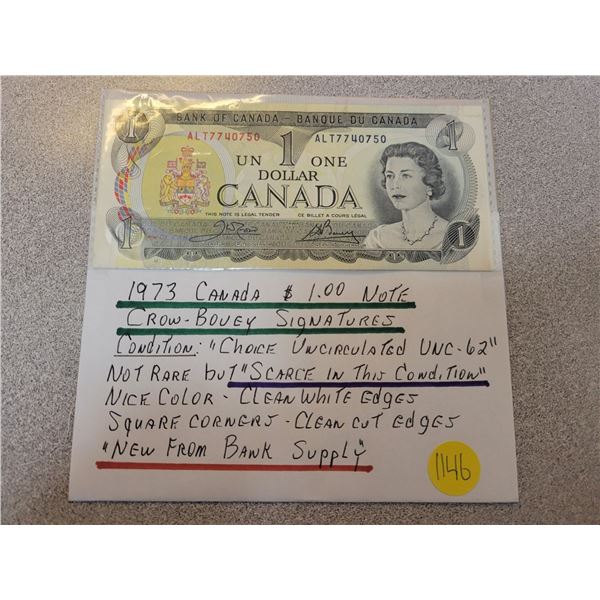 BANK OF CANADA – BANQUE DU CANADA
ALT7740750 ALT7740750
1 1
UN 1 ONE
DOLLAR
CANADA
THIS NOTE IS LEGAL TENDER CE BILLET A COURS LÉGAL
1 1
1973 CANADA $ 1.00 NOTE
CROW-BOUEY SIGNATURES
CONDITION: "CHOICE UNCIRCULATED UNC-62"
NOT RARE but "SCARCE IN THIS CONDITION"
NICE COLOR - CLEAN WHITE EdgES
SQUARE CORNERS - CLEAN CUT EdgES
"NEW FROM BANK SUPPLY"
1146